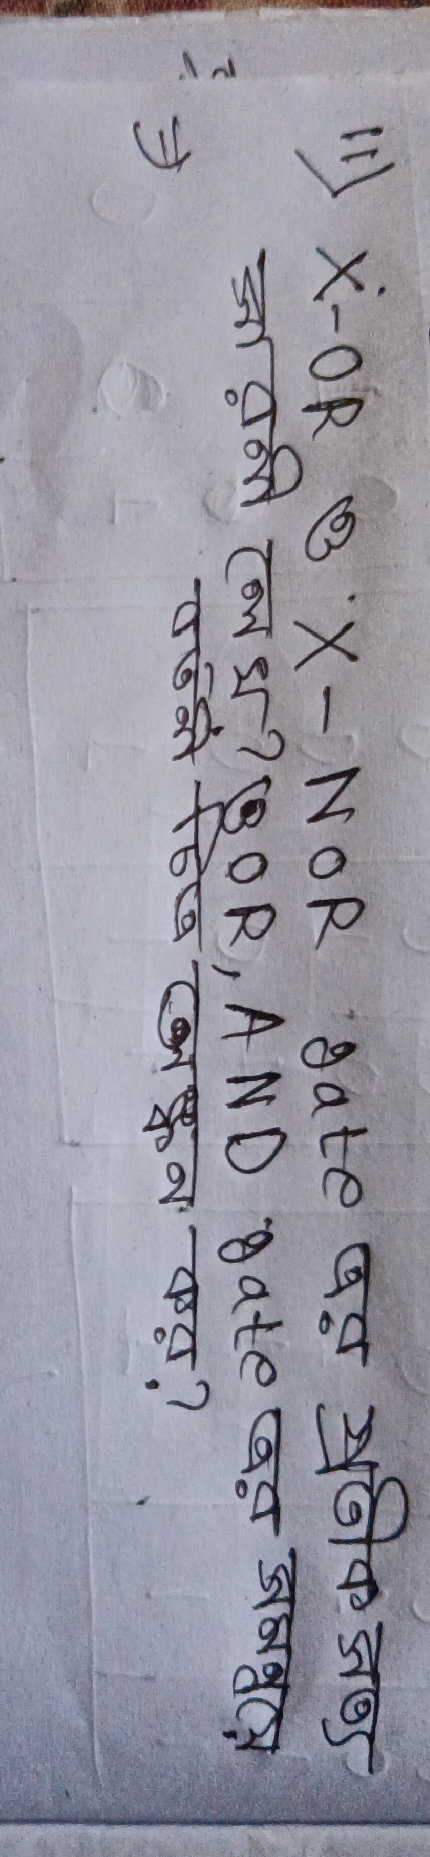 ii) X-OR ও X-NOR gate এর প্রতিক সত্য
সারনি লেখ? ও OR, AND gate এর সমন্বয়ে
বর্তনী টিও অঙ্কন কর?
⇒